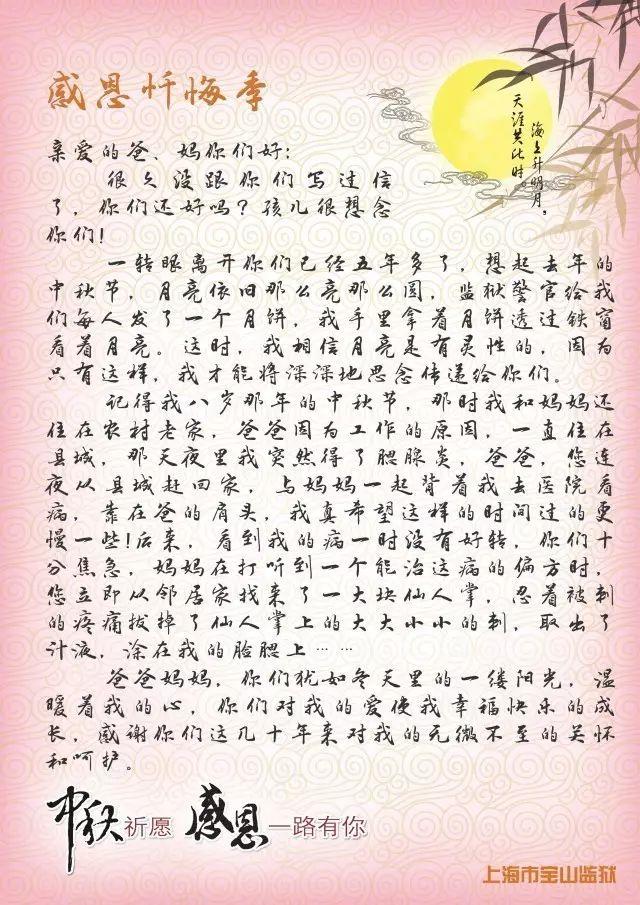 感恩忏悔季
海上升明月，
天涯共此时。
亲爱的爸、妈你们好：
很久没跟你们写过信
了，你们还好吗？孩儿很想念
你们！
一转眼离开你们已经五年多了，想起去年的
中秋节，月亮依旧那么亮那么圆，监狱警官给我
们每人发了一个月饼，我手里拿着月饼透过铁窗
看着月亮。这时，我相信月亮是有灵性的，因为
只有这样，我才能将深深地思念传递给你们。
记得我八岁那年的中秋节，那时我和妈妈还
住在农村老家，爸爸因为工作的原因，一直住在
县城，那天夜里我突然得了腮腺炎，爸爸，您连
夜从县城赶回家，与妈妈一起背着我去医院看
病，靠在爸的肩头，我真希望这样的时间过的更
慢一些!后来，看到我的病一时没有好转，你们十
分焦急，妈妈在打听到一个能治这病的偏方时，
您立即从邻居家找来了一大块仙人掌，忍着被刺
的疼痛拔掉了仙人掌上的大大小小的刺，取出了
计液，涂在我的脸腮上……
爸爸妈妈，你们犹如冬天里的一缕阳光，温
暖着我的心，你们对我的爱使我幸福快乐的成
长，感谢你们这几十年来对我的无微不至的关怀
和呵护。
中秋祈愿 感恩一路有你
上海市宝山监狱